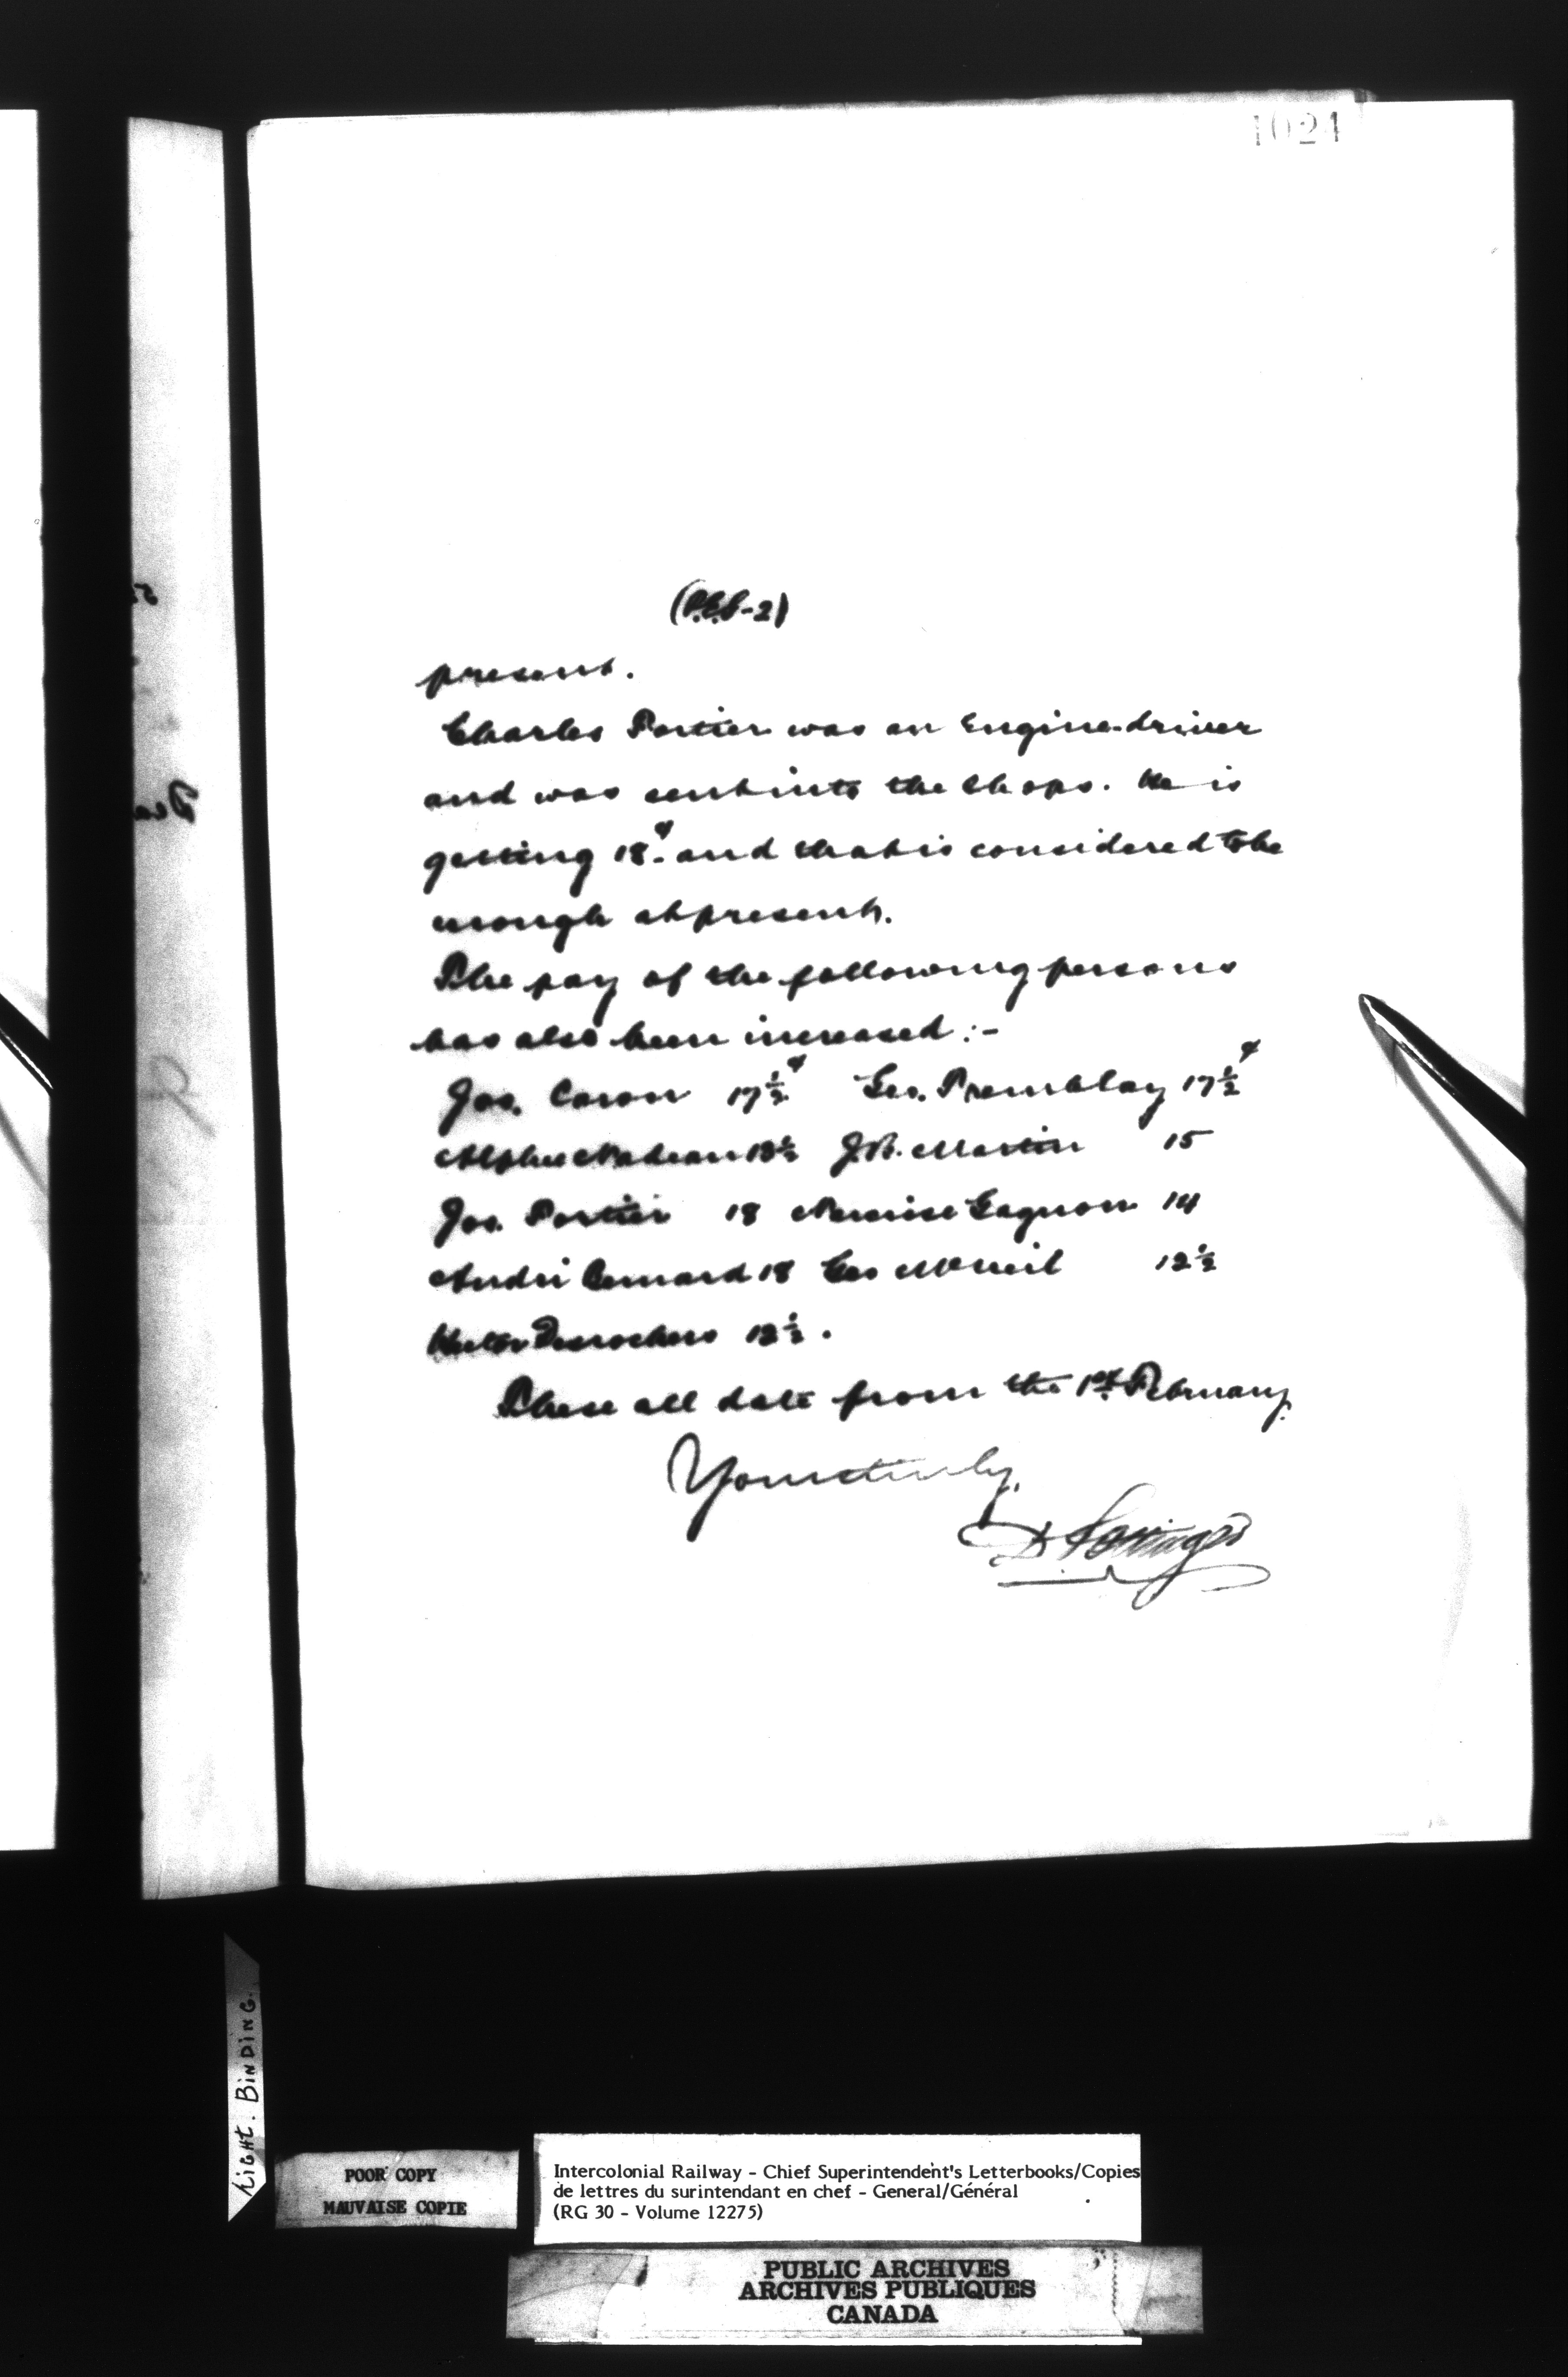 1024
present.
Charles Fortier was an Engine-driver
and was sent into the shops. He is
getting 18¢ and that is considered to be
enough at present.
The pay of the following persons
has also been increased :-
Jos. Caron 17½¢ Geo. Tremblay 17½¢
Nadeau J.B. Martin 15
Jos. Fortier 18 Narcisse Gagnon 14
André Bernard 18 Geo McNeil 12½
Desrochers 12½.
These all date from the 1st February.
Yours truly,
D Pottinger
Light. BINDING.
POOR COPY
MAUVAISE COPIE
Intercolonial Railway - Chief Superintendent's Letterbooks/Copies
de lettres du surintendant en chef - General/Général
(RG 30 - Volume 12275)
PUBLIC ARCHIVES
ARCHIVES PUBLIQUES
CANADA